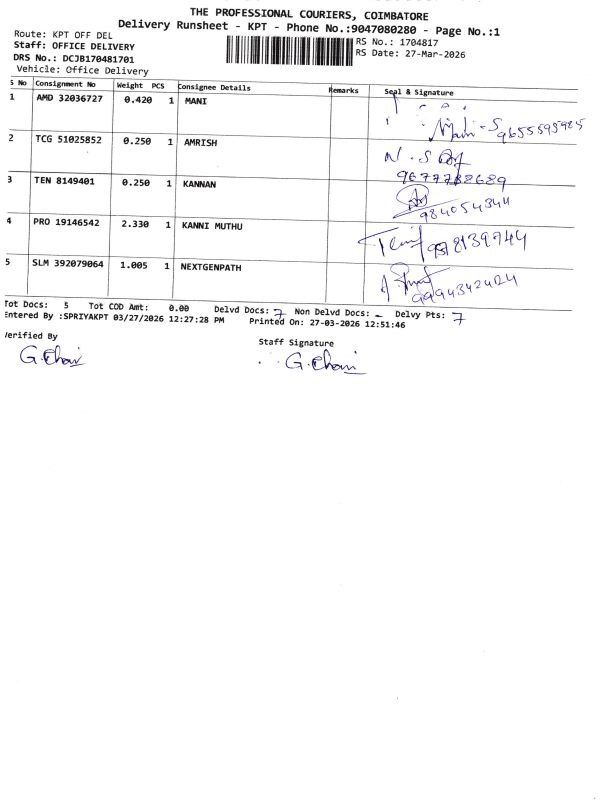 THE PROFESSIONAL COURIERS, COIMBATORE
Delivery Runsheet - KPT - Phone No.:9047080280 - Page No.:1
Route: KPT OFF DEL
RS No.: 1704817
Staff: OFFICE DELIVERY
RS Date: 27-Mar-2026
DRS No.: DCJB170481701
Vehicle: Office Delivery
S No Consignment No Weight PCS Consignee Details Remarks Seal & Signature
1 AMD 32036727 0.420 1 MANI
Mani - S 9655595985
2 TCG 51025852 0.250 1 AMRISH
N . S
3 TEN 8149401 0.250 1 KANNAN
4 PRO 19146542 2.330 1 KANNI MUTHU
5 SLM 392079064 1.005 1 NEXTGENPATH
9994342424
Tot Docs: 5 Tot COD Amt: 0.00 Delvd Docs: 7 Non Delvd Docs: - Delvy Pts: 7
Entered By :SPRIYAKPT 03/27/2026 12:27:28 PM Printed On: 27-03-2026 12:51:46
Verified By
Staff Signature